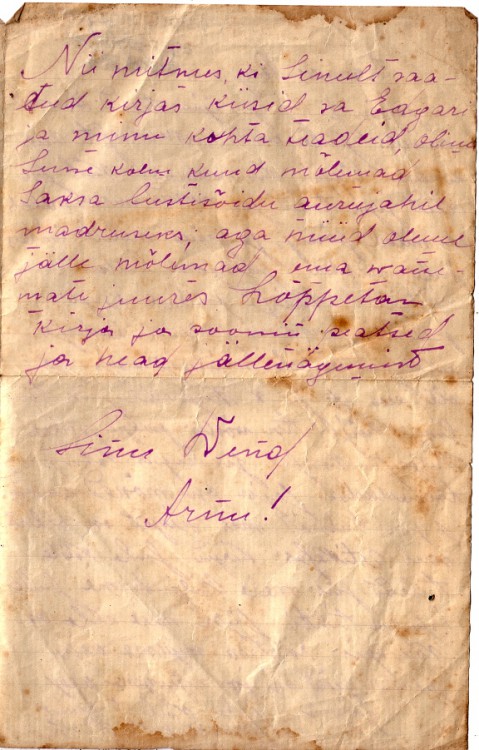 Nii mitmes, ki Sinult saa-
tud kirjas küsid sa Edgari
ja minu kohta teadeid, olime
Suve kolm kuud mõlemad
Saksa lustisõidu aurujahil
madruseks, aga nüüd oleme
jälle mõlemad oma wane-
mate juures Lõppetan
kirja ja soovin
ja head jällenägemist
Sinu Wend
Arnu!